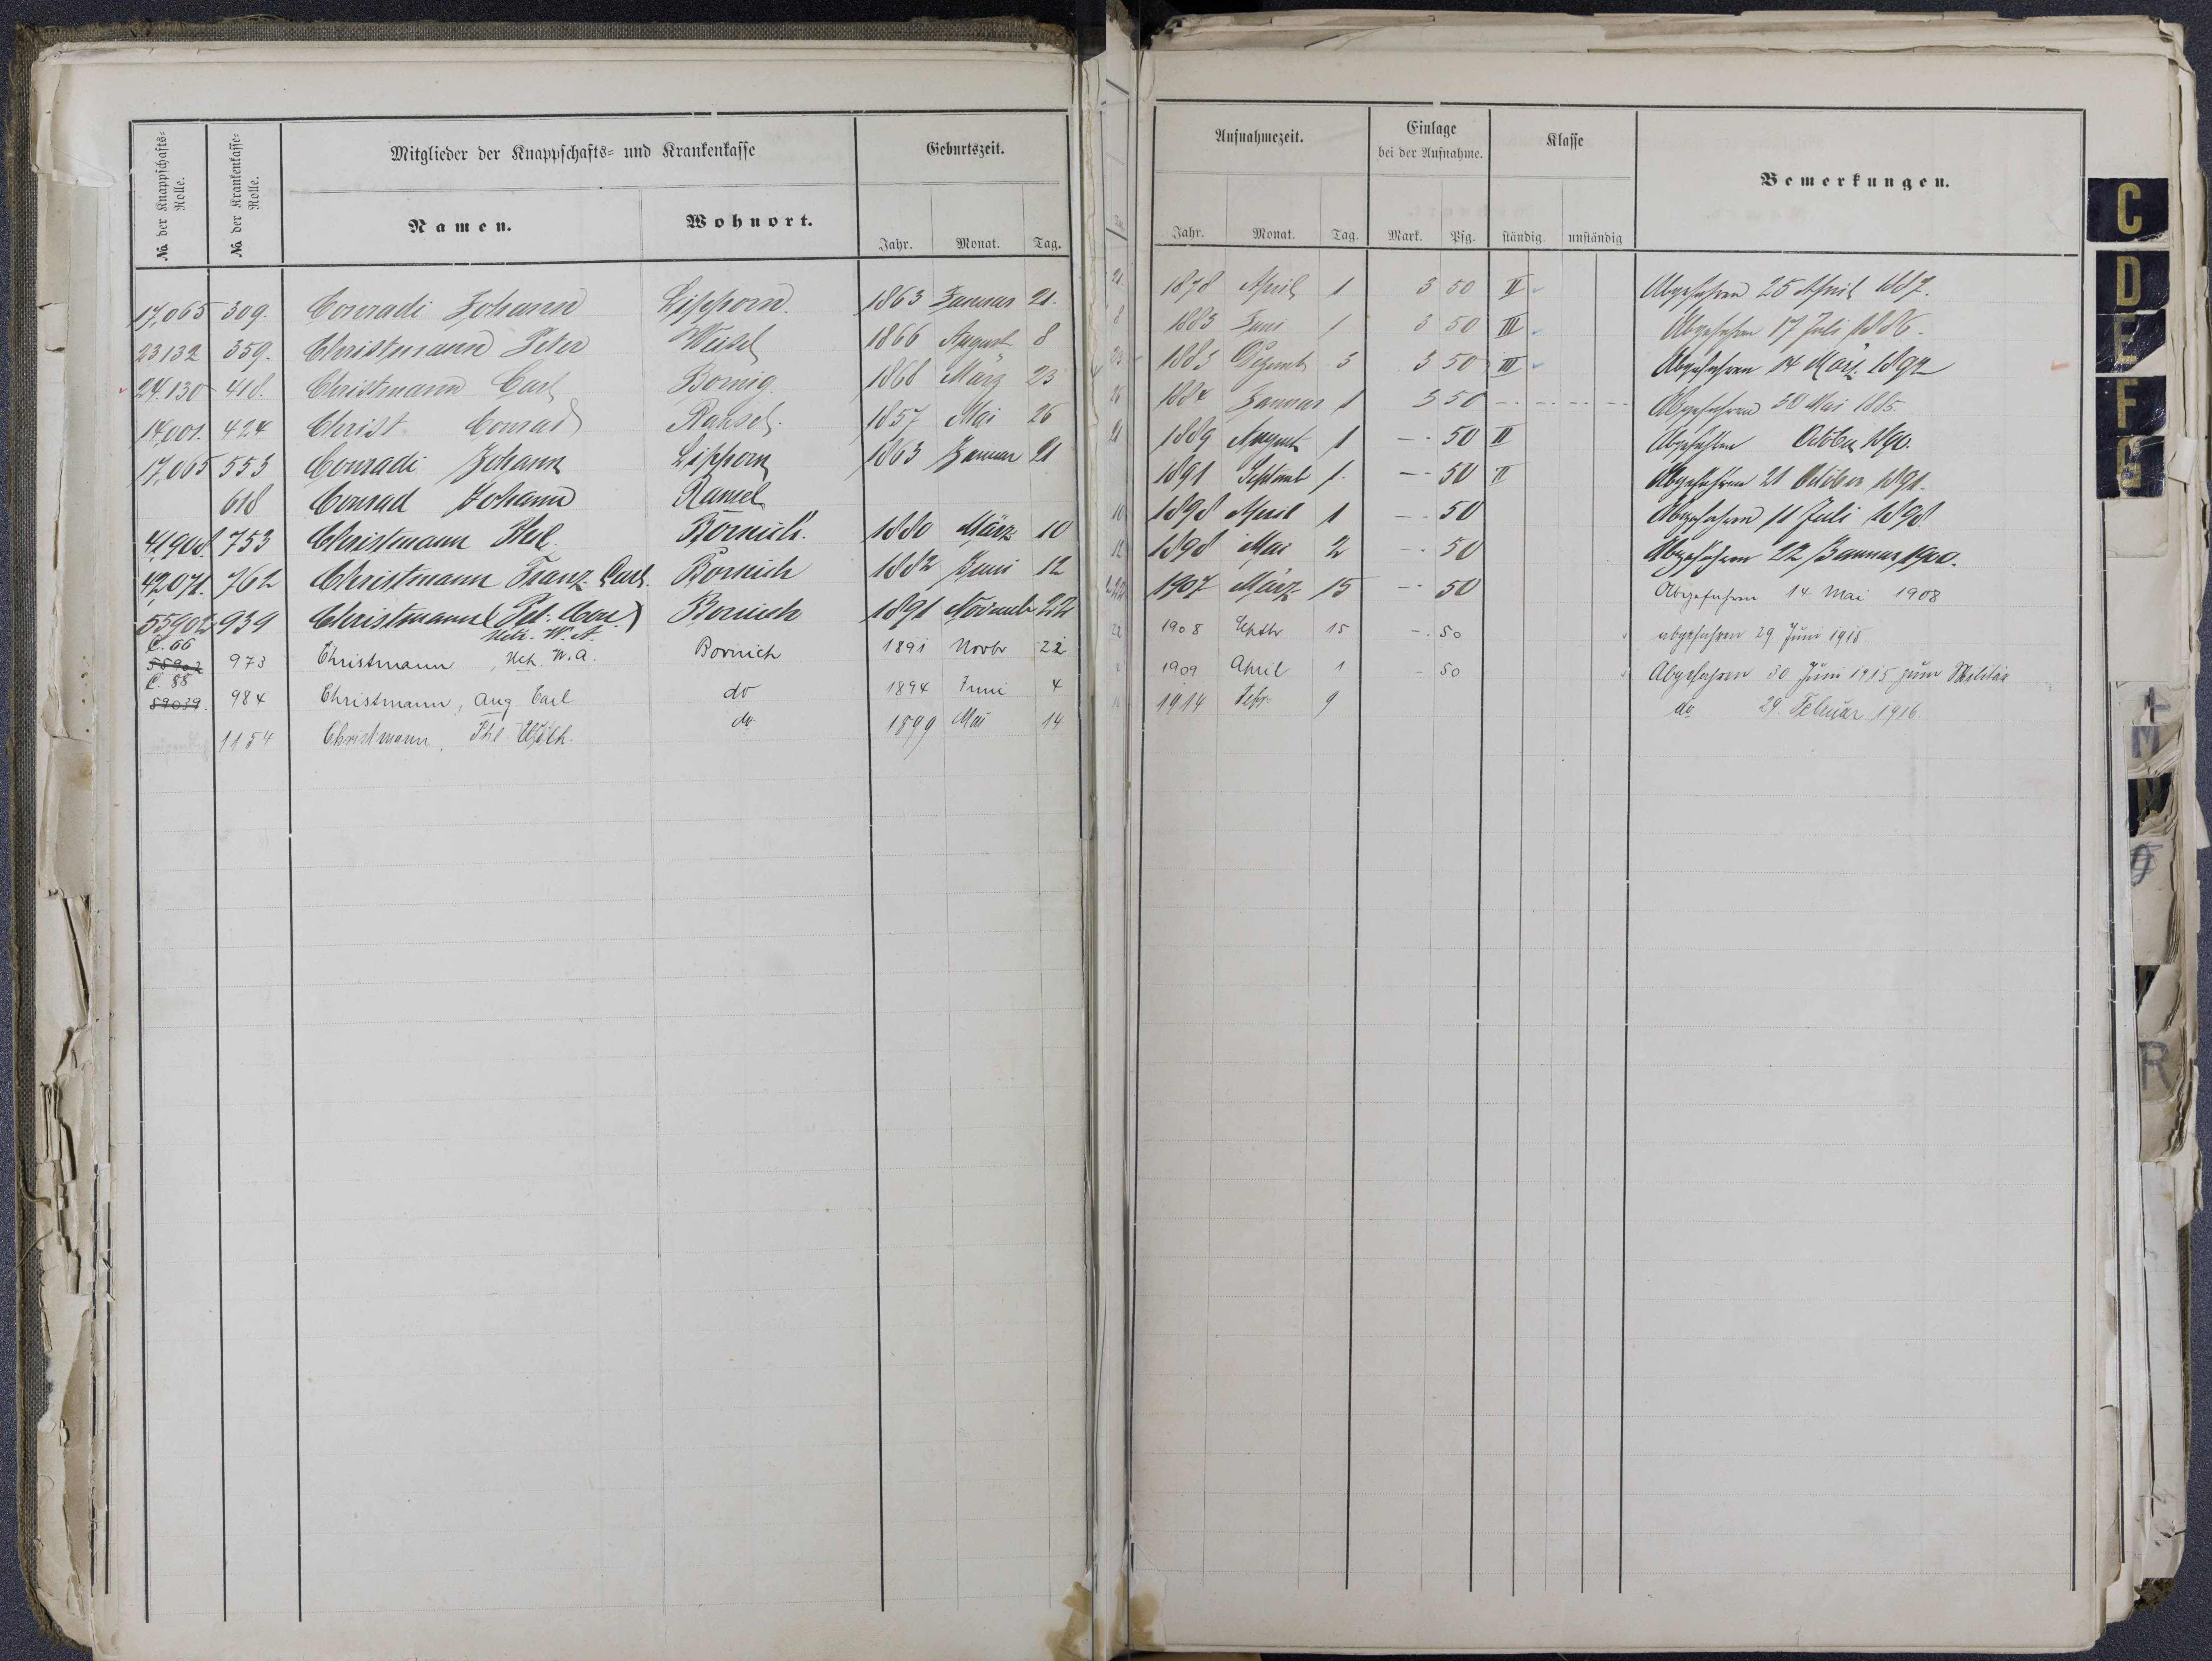 № der Knappschafts-Rolle.
№ der Krankenkasse-Rolle.
Mitglieder der Knappschafts- und Krankenkasse
Geburtszeit.
Namen.
Wohnort.
Jahr. Monat. Tag.
Aufnahmezeit.
Einlage
bei der Aufnahme.
Klasse
Bemerkungen.
Jahr. Monat. Tag. Mark. Pfg. ständig unständig
17,065 309. Conradi Johann Lipporn. 1863 Januar 21. 1878 April 1 3 50 II Abgefahren 25 April 1887.
23132 359. Christmann Peter Weisel 1866 August 8 1883 Juni 1 3 50 III Abgefahren 17 Juli 1886.
24.130 418. Christmann Carl Bornig 1868 März 23 1883 Dezemb 3 3 50 III Abgefahren 14 März 1892
14,001. 424 Christ Conrad Ransel. 1857 Mai 26 1884 Januar 1 3 50 Abgefahren 30 Mai 1885.
17,065 553 Conradi Johann Lipporn 1863 Januar 21 1889 August 1 — 50 II Abgefahren October 1890.
618 Conrad Johann Ransel 1891 Septemb 1. — 50 II Abgefahren 21 October 1891.
41908. 753 Christmann Bornich. 1880 März 10 1898 April 1 — 50 Abgefahren 11 Juli 1898
42071. 762 Christmann Franz Carl. Bornich 1882 Juni 12 1898 Mai 2 — 50 Abgefahren 22 Januar 1900.
55902 939 Christmann Bornich 1891 Novemb 22 1907 März 15 — 50 Abgefahren 14. Mai 1908
W. A.
C. 66
55902 973 Christmann, W. A. Bornich 1891 Novbr 22 1908 Septbr 15 -. 50 abgefahren 29 Juni 1915
C. 88
59039. 984 Christmann, Aug. Carl do 1894 Juni 4 1909 April 1 - 50 Abgefahren 30. Juni 1915 zum Militär
1154 Christmann, Phl do 1899 Mai 14 1914 Febr. 9 do 29. Februar 1916.
C
D
E
F
G
L
M
N
O
R